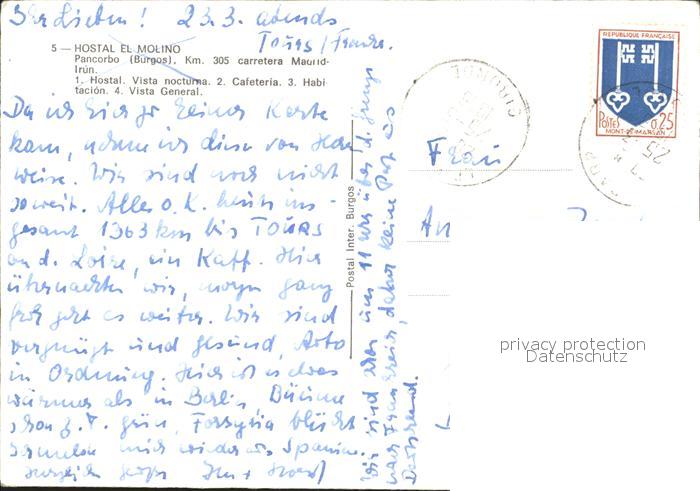 Ihr Lieben! 23.3. abends
Tours/Frankr.
5 — HOSTAL EL MOLINO
Pancorbo (Burgos). Km. 305 carretera Madrid-
Irún.
1. Hostal. Vista nocturna. 2. Cafetería. 3. Habi-
tación. 4. Vista General.
Da ich hier zu keiner Karte
kam, nehme ich diese von
weise. Wir sind noch nicht
soweit. Alles o.K. heute ins-
gesamt 1363 km bis TOURS
an d. Loire, ein Kaff. Hier
übernachten wir, morgen ganz
früh geht es weiter. Wir sind
vergnügt und gesund, Auto
in Ordnung. Hier ist es etwas
wärmer als in Berlin, Bäume
schon z.T. grün, Forsythia blüht
mich wieder aus Spanien.
Herzliche Horst
Wir sind um 11 Uhr über d. Grenze
nach Frankreich, daher keine Post aus
Postal Inter. Burgos
Frau
An
REPUBLIQUE FRANÇAISE
POSTES 0,25
MONT-DE-MARSAN
privacy protection
Datenschutz